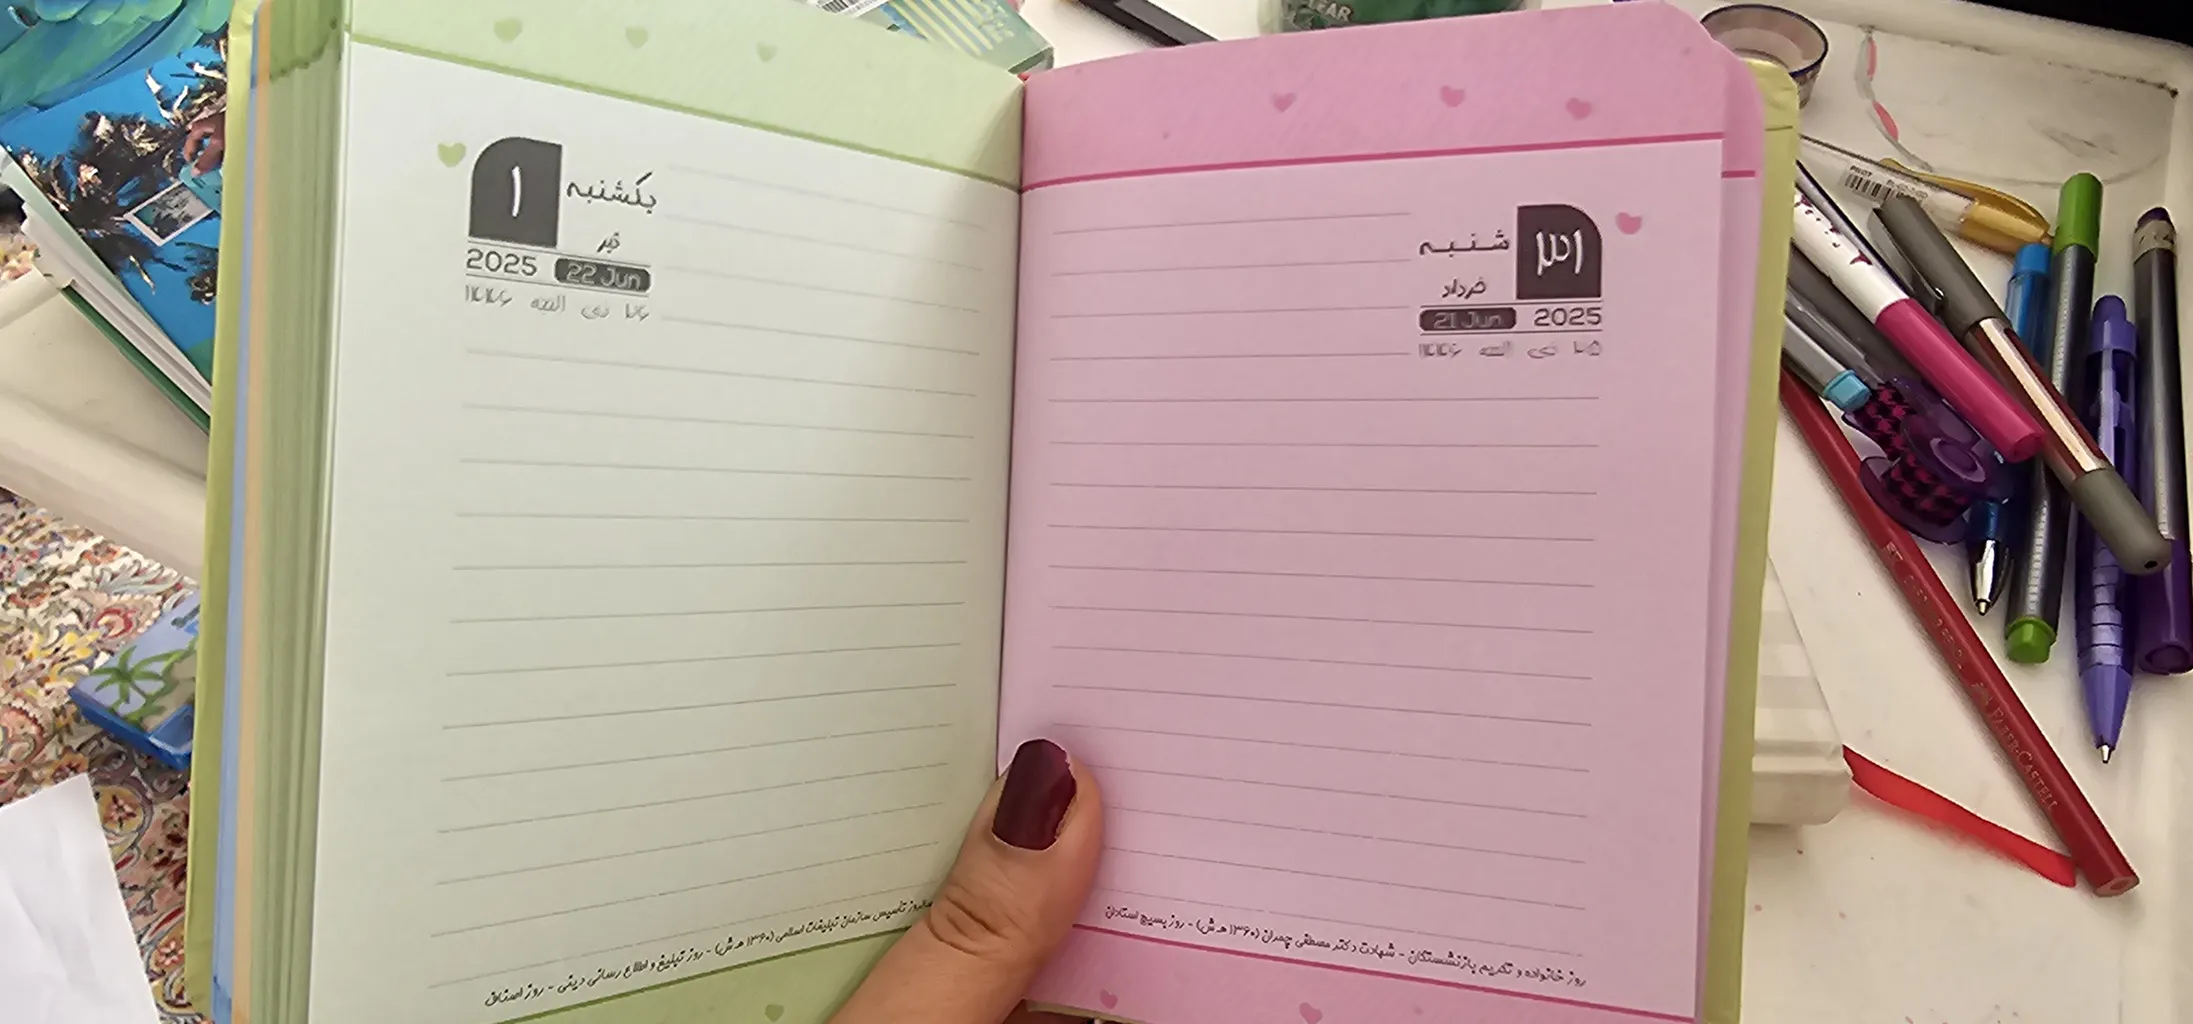 شنبه
۳۱
خرداد
21 Jun 2025
۲۵ ذی الحجه ۱۴۴۶
روز خانواده و تکریم بازنشستگان - شهادت دکتر مصطفی چمران (۱۳۶۰ ه.ش) - روز بسیج استادان
۱
یکشنبه
تیر
2025 22 Jun
۲۶ ذی الحجه ۱۴۴۶
تأسیس سازمان تبلیغات اسلامی (۱۳۶۰ ه.ش) - روز تبلیغ و اطلاع رسانی دینی - روز اصناف
LEAR
PILOT
FABER-CASTELL